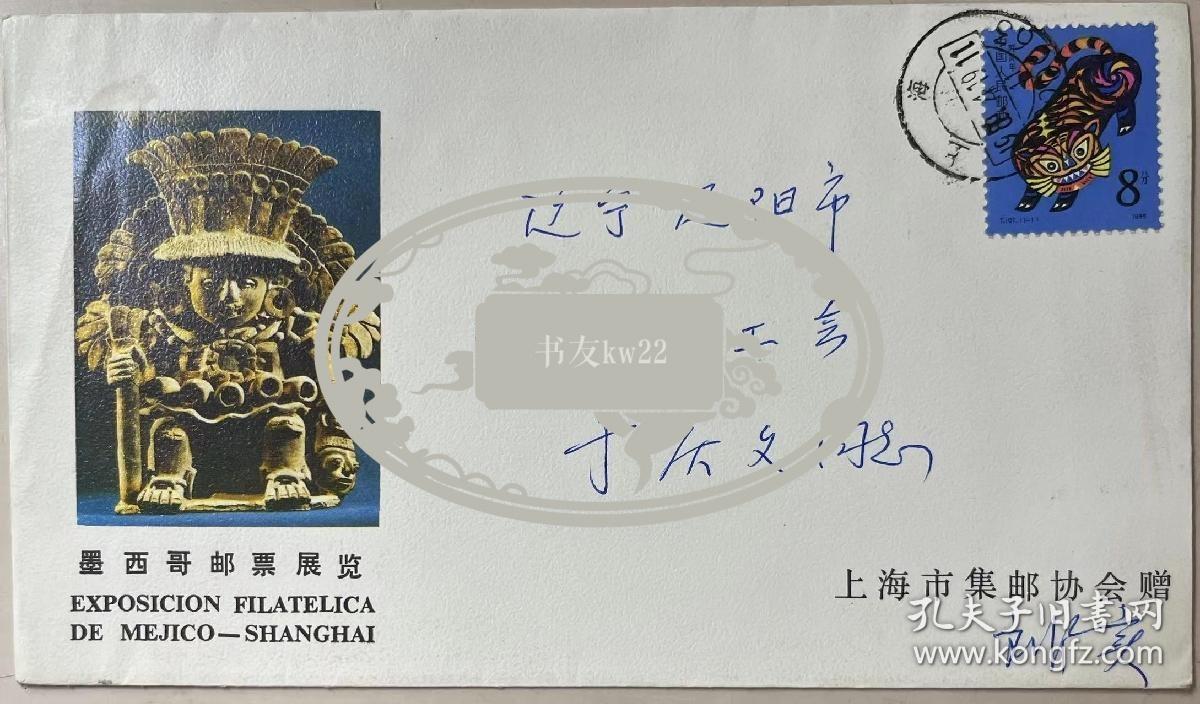 中国人民邮政
上海
8分
T.107.(1-1)
1986
辽宁辽阳市
工会
书友kw22
墨西哥邮票展览
EXPOSICION FILATELICA
DE MEJICO—SHANGHAI
上海市集邮协会赠
孔夫子旧书网
www.kongfz.com